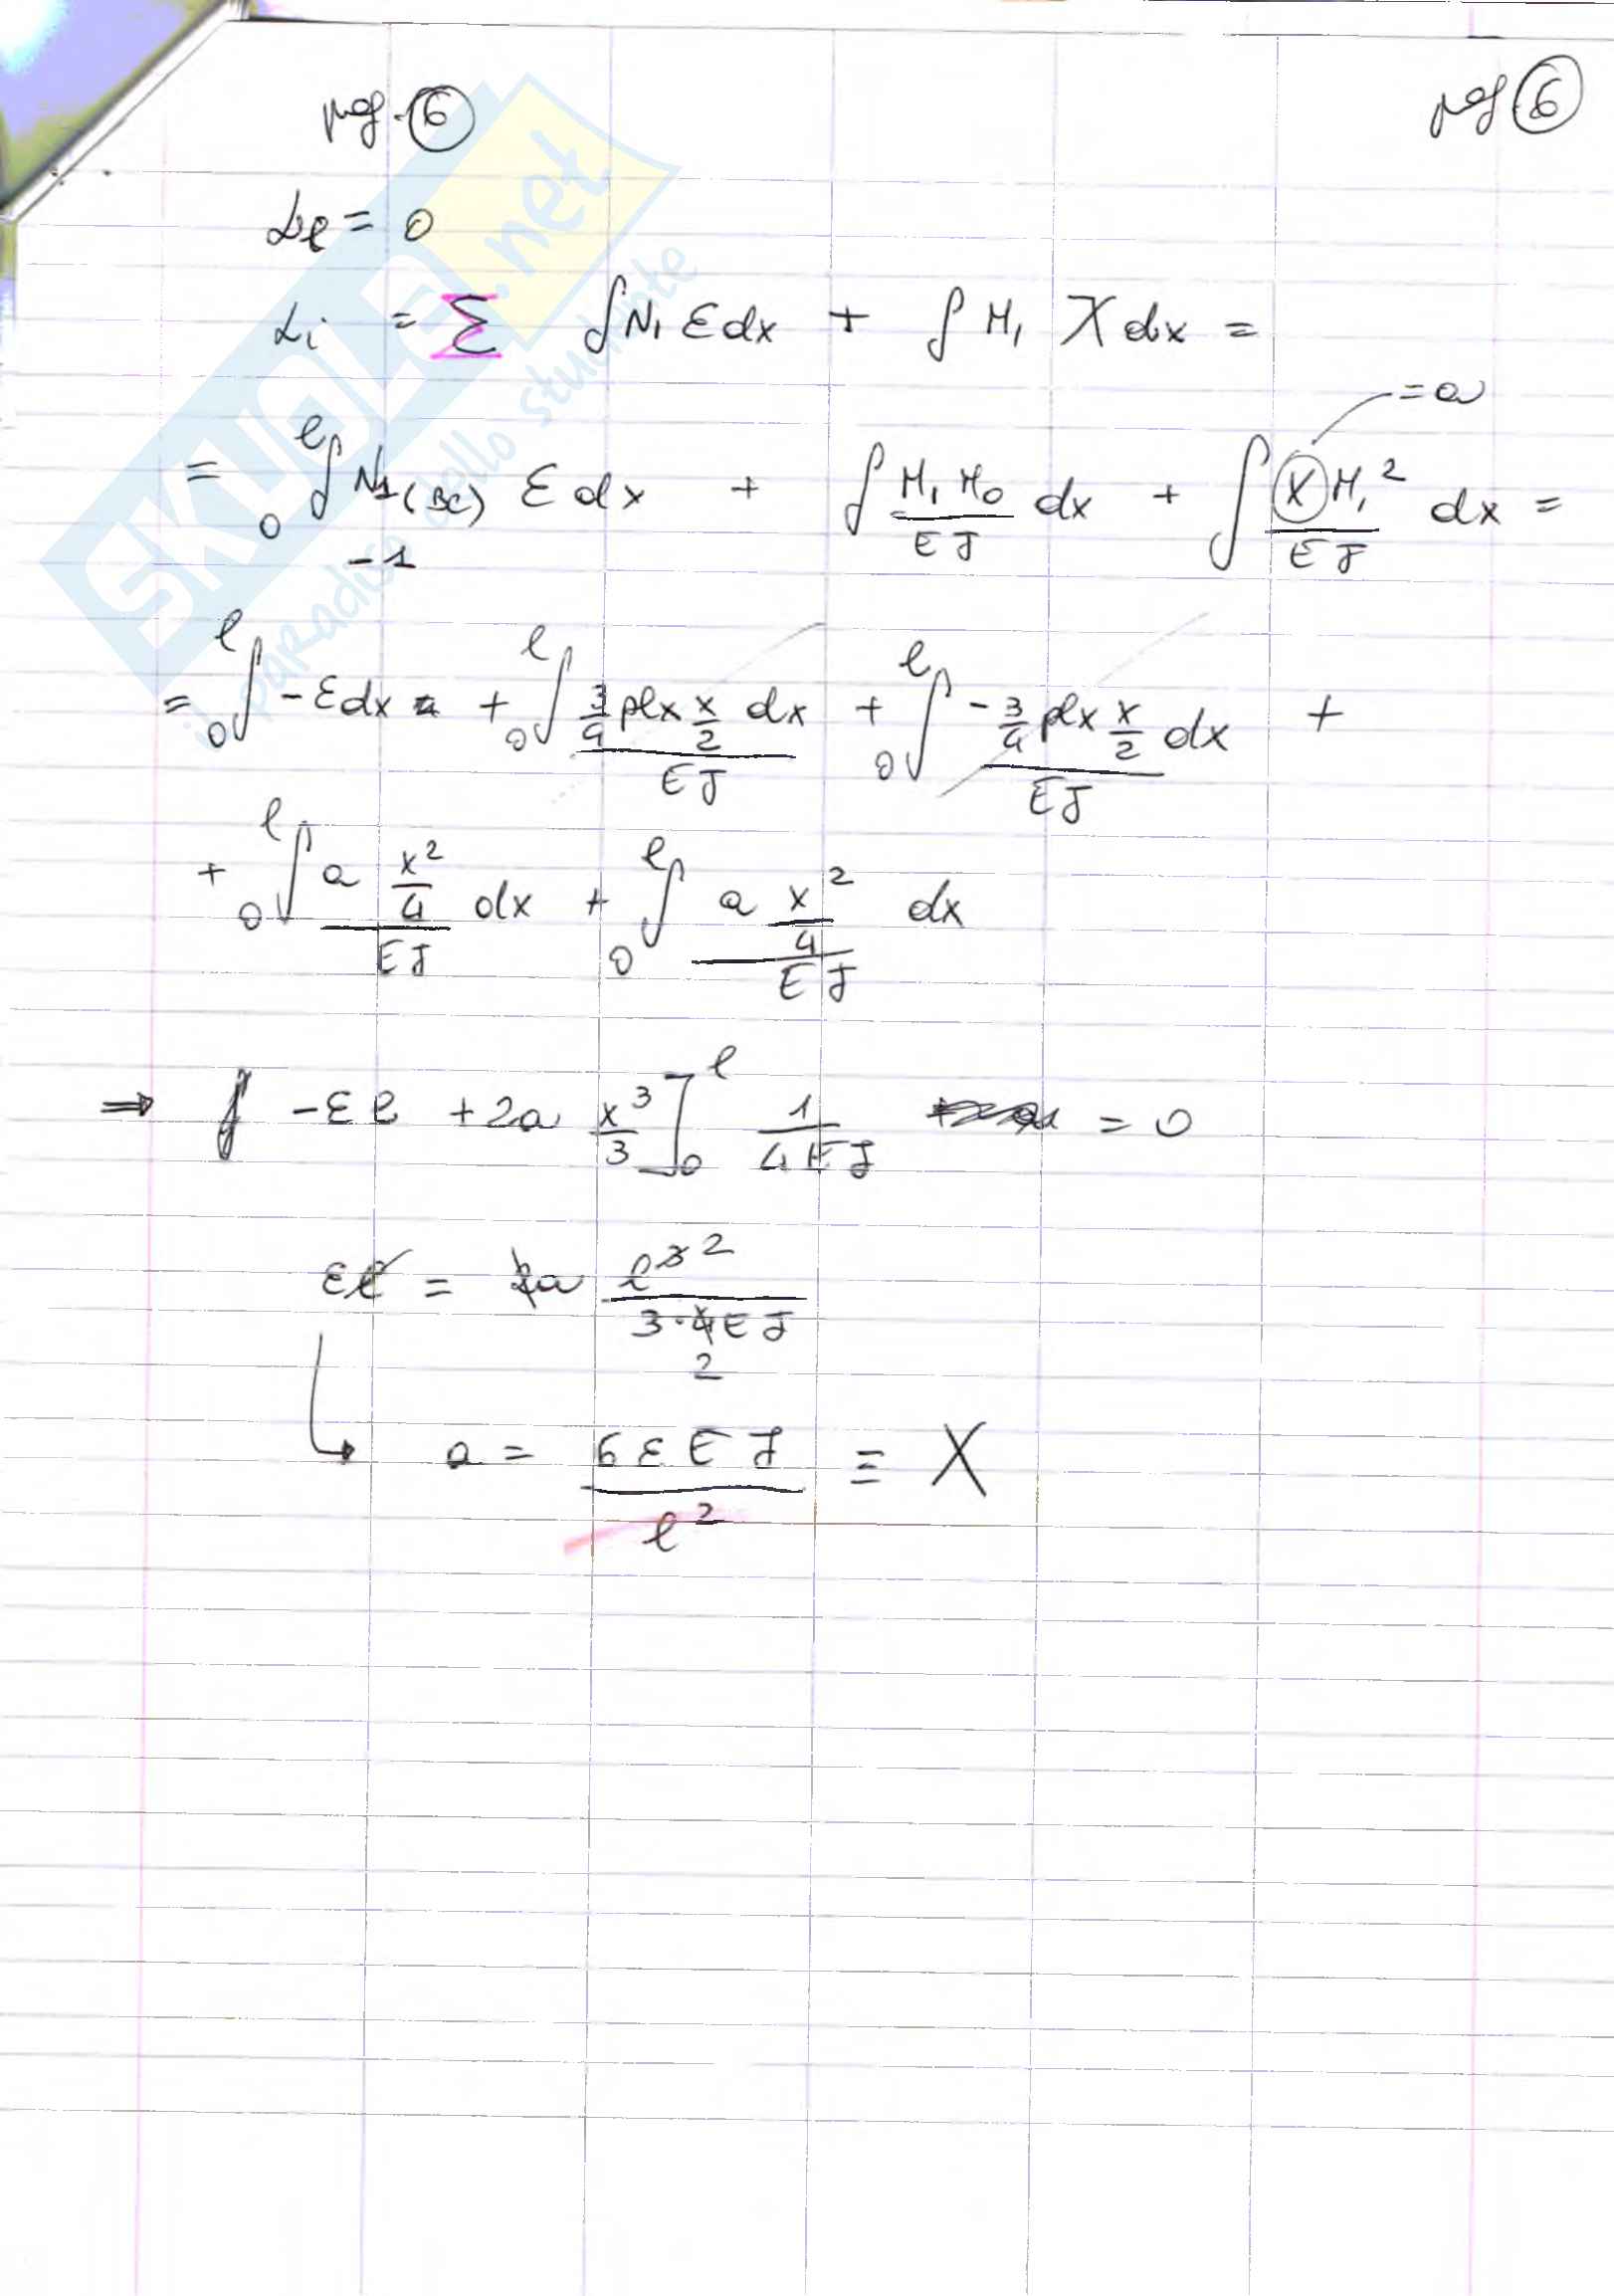 pag. 6
pag 6
Le = 0
Li = Σ ∫ N₁ ε dx + ∫ M₁ χ dx =
= a
= ₀∫ˡ N₁(BC) ε dx + ∫ M₁ M₀ / EJ dx + ∫ X M₁² / EJ dx =
-1
= ₀∫ˡ -ε dx + ₀∫ˡ 3/4 plx x/2 dx / EJ + ₀∫ˡ -3/4 plx x/2 dx / EJ +
+ ₀∫ˡ a x²/4 / EJ dx + ₀∫ˡ a x²/4 / EJ dx
⇒ -εl + 2a x³/3 ]₀ˡ 1/4EJ = 0
εl = 2a l³ ² / 3·4EJ
2
a = 6εEJ / l² ≡ X
SKUOLA.net
il paradiso dello studente